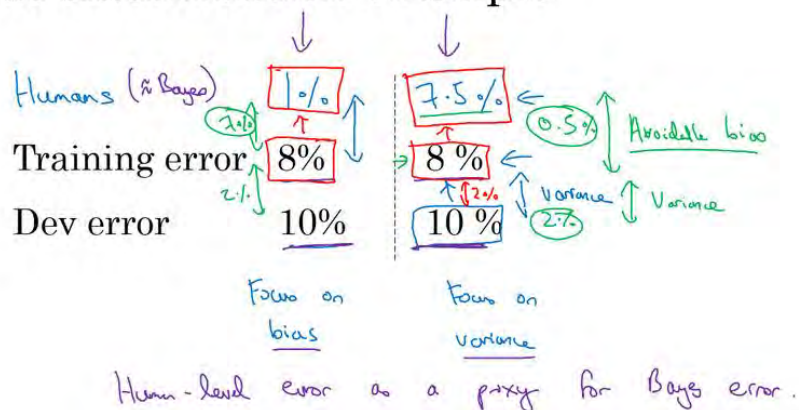 Humans (≈ Bayes) 1% 7.5% 0.5% Avoidable bias
7%
Training error 8% 8 % 
2% 2% variance Variance
Dev error 10% 10 % 2%
Focus on Focus on
bias variance
Human-level error as a proxy for Bayes error.